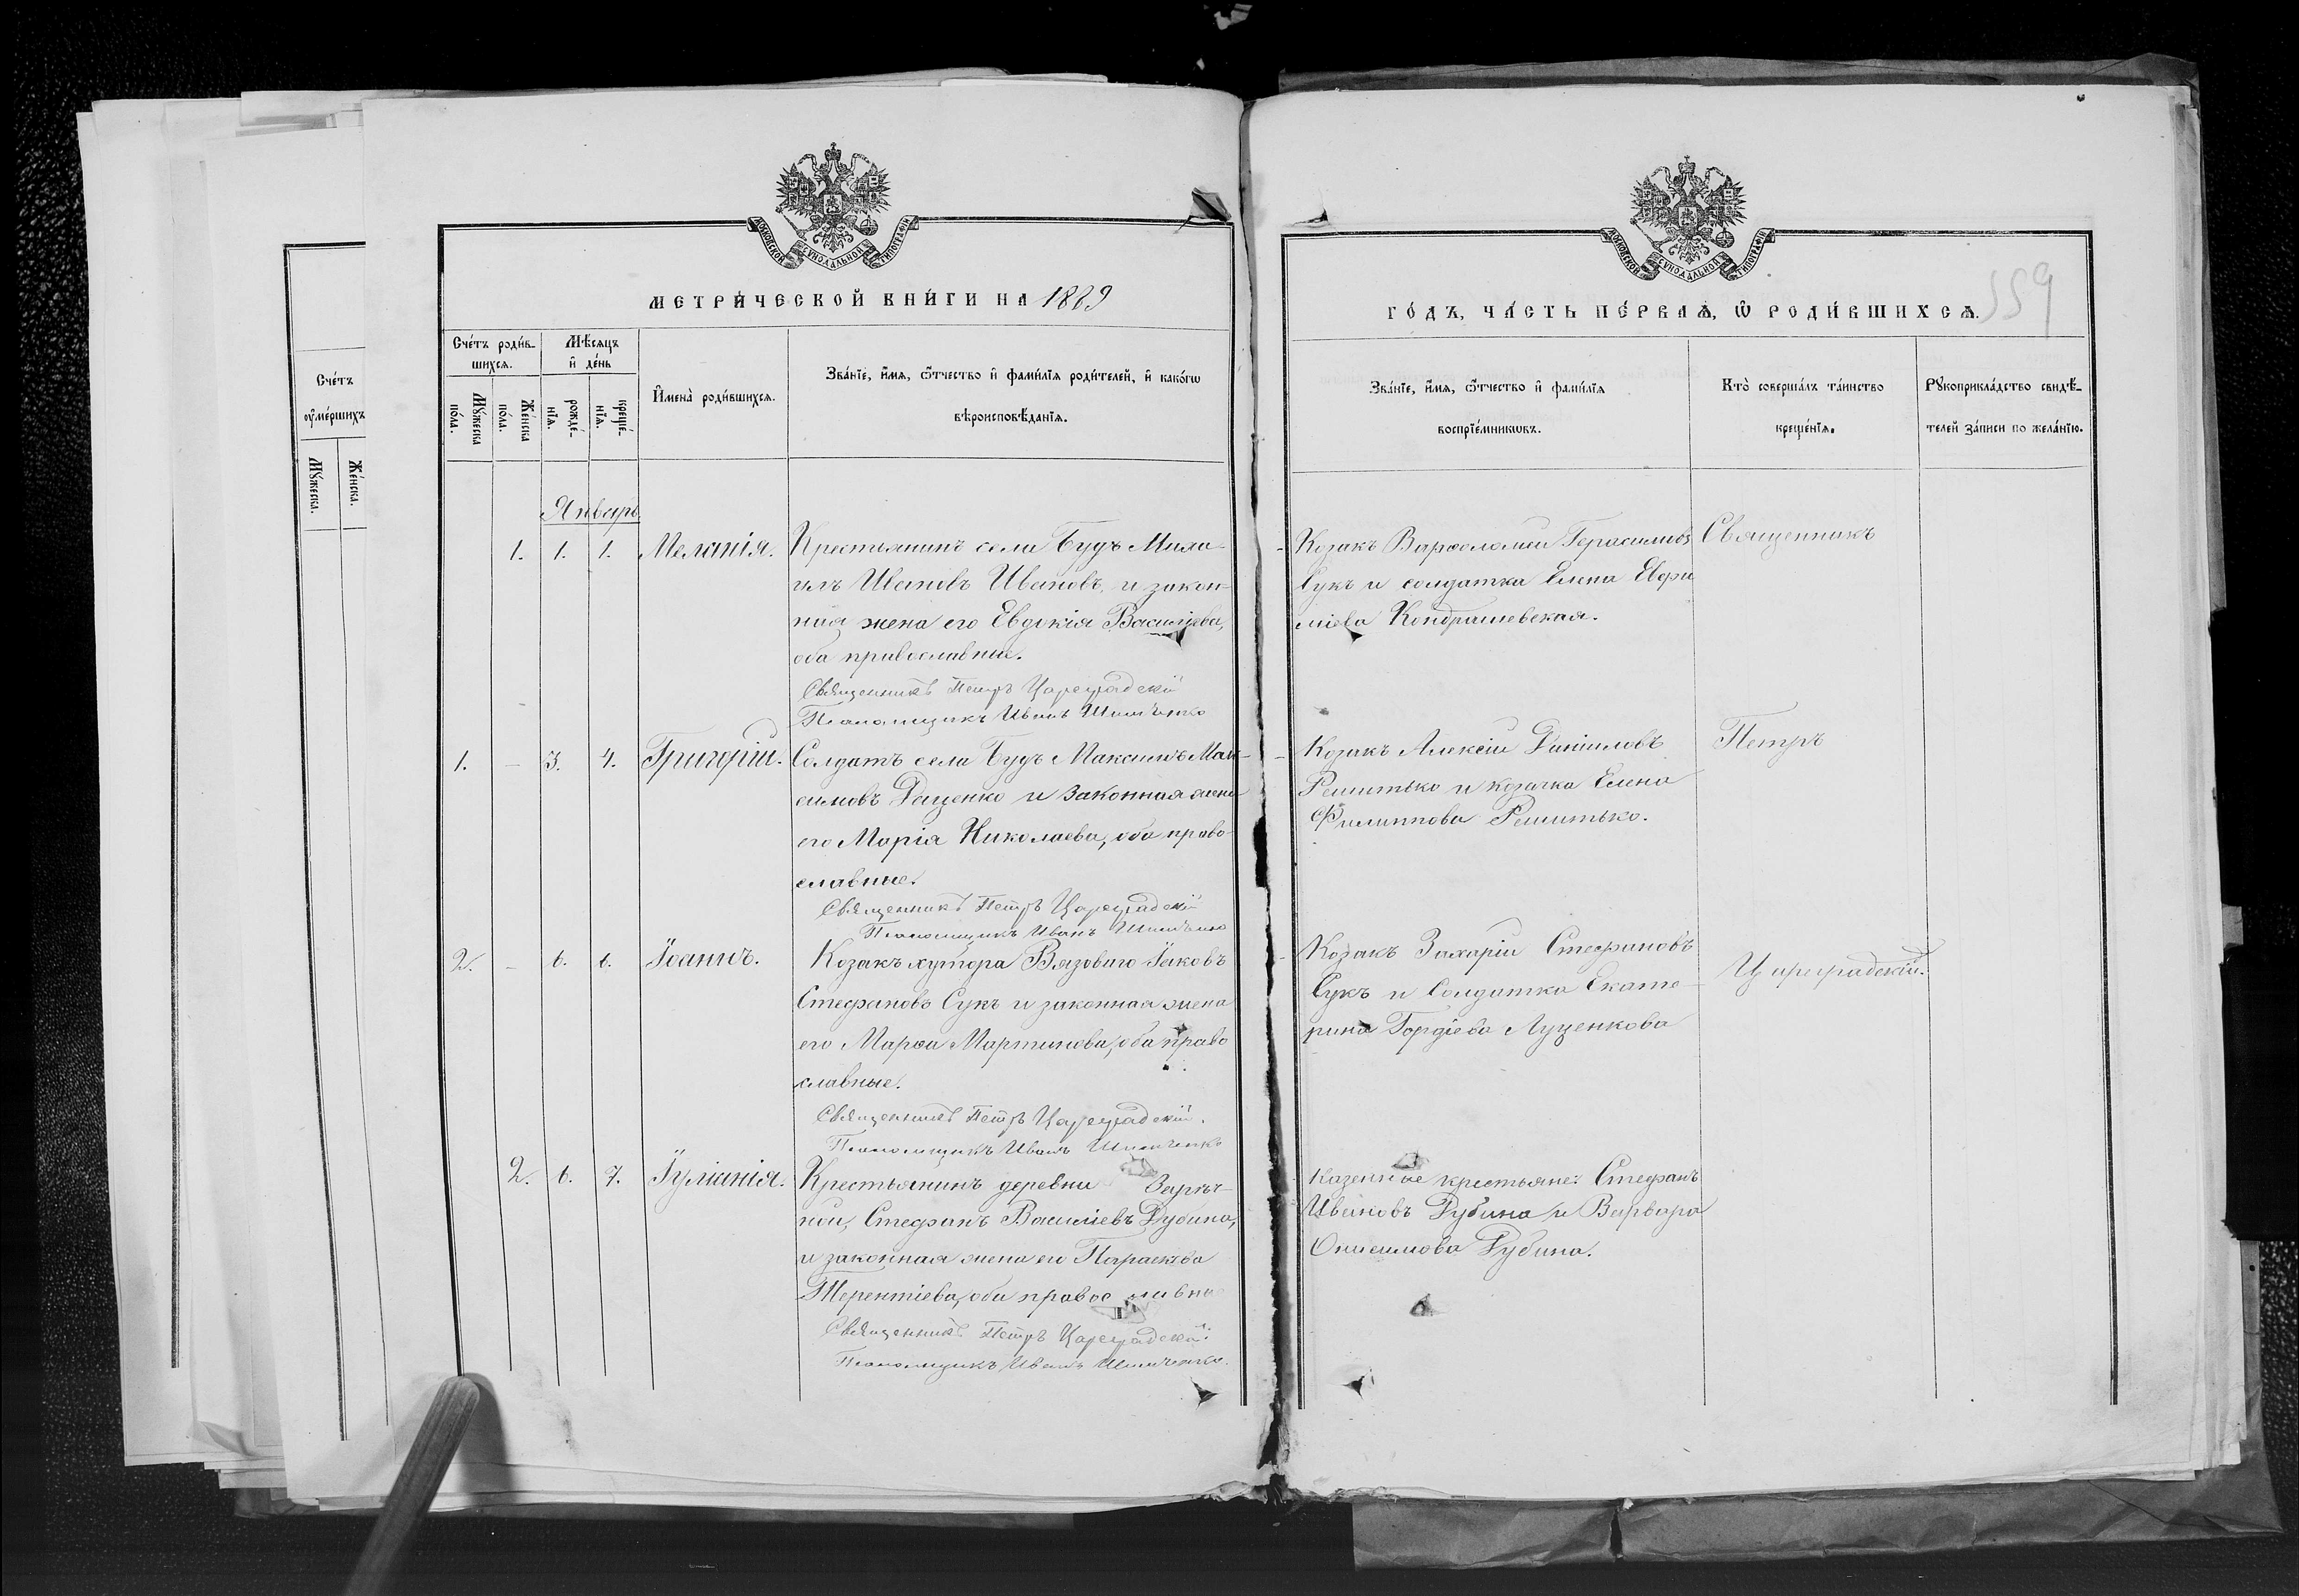 МОСКОВСКОЙ СУНОДАЛЬНОЙ ТИПОГРАФІИ
МЕТРИ́ЧЕСКОЙ КНИ́ГИ НА 1889
Сче́тъ роди́в-
шихся.
Мѣсяцъ
и҆ де́нь
Мꙋ́жеска
по́ла.
Же́нска
по́ла.
рожде́-
нїѧ.
креще́-
нїѧ.
И҆мена̀ роди́вшихся.
Зва́нїе, и҆́мѧ, ѻ҆́тчество и҆ фами́лїѧ роди́телей, и҆ како́гѡ
вѣроисповѣ́данїѧ.
Январь.
1. 1. 1. Меланія. Крестьянинъ села Будъ Миха-
илъ Ивановъ Ивановъ, и закон-
ная жена его Евдокія Василіева,
оба православные.
Священникъ Петръ Цареградскій
Псаломщикъ Иванъ
1. – 3. 4. Григорій. Солдатъ села Будъ Максимъ Мак-
симовъ Даценко и законная жена
его Марія Николаева, оба право-
славные.
Священникъ Петръ Цареградскій
Псаломщикъ Иванъ
2. – 6. 6. Іоаннъ. Козакъ хутора Вязоваго Іаковъ
Стефановъ Сукъ и законная жена
его Марѳа Мартинова, оба право
славные.
Священникъ Петръ Цареградскій.
Псаломщикъ Иванъ
2. 6. 7. Іуліанія. Крестьянинъ деревни Зарѣч-
ной, Стефанъ Василіевъ Дубина,
и законная жена его Параскева
Терентіева, оба православные
Священникъ Петръ Цареградскій.
Псаломщикъ Иванъ
МОСКОВСКОЙ СУНОДАЛЬНОЙ ТИПОГРАФІИ
559
ГО́ДЪ, ЧА́СТЬ ПЕ́РВАѦ, Ѡ҆ РОДИ́ВШИХСѦ.
Зва́нїе, и҆́мѧ, ѻ҆́тчество и҆ фами́лїѧ
воспрїе́мникѡвъ.
Кто̀ соверша́лъ та́инство
креще́нїѧ.
Рꙋкоприкла́дство свидѣ́-
телей за́писи по жела́нїю.
Козакъ Варѳоломей Герасимовъ
Сукъ и солдатка Елена Евфи
міева Кондрашевская.
Священникъ
Козакъ Алексій Даніиловъ
Решитько и козачка Елена
Филиппова Решитько.
Петръ
Козакъ Захарій Стефановъ
Сукъ и Солдатка Екате-
рина Гордіева Луценкова
Цареградскій.
Казенные крестьяне: Стефанъ
Ивановъ Дубина и Варвара
Онисимова Дубина.
Сче́тъ
ᲂу҆ме́ршихъ
Мꙋ́жеска.
Же́нска.